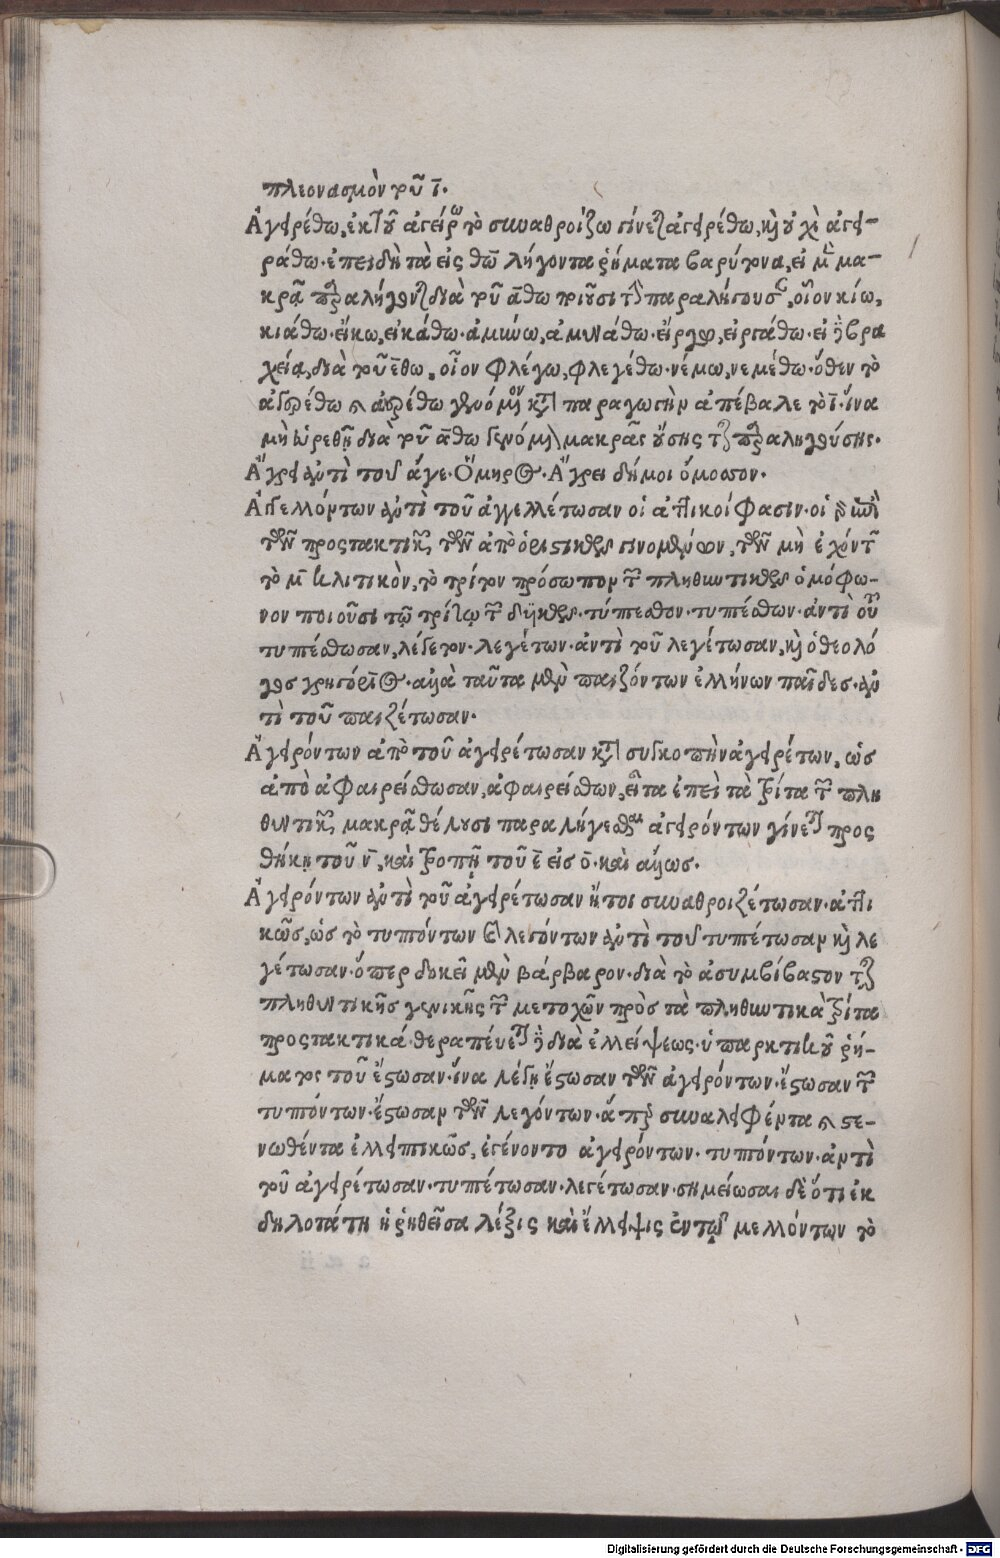 πλεονασμὸν τοῦ ῑ.
Ἀγερέθω, ἐκ τοῦ ἀγείρω τὸ συναθροίζω γίνεται ἀγερέθω, καὶ οὐχὶ ἀγε-
ράθω· ἐπειδὴ τὰ εἰς θω λήγοντα ῥήματα βαρύτονα, εἰ μὲν μα-
κρᾷ παραλήγονται διὰ τοῦ ᾱθω ποιοῦσι τὴν παραλήγουσαν, οἷον κίω,
κιάθω· εἴκω, εἰκάθω· ἀμύνω, ἀμυνάθω· εἴργω, εἰργάθω· εἰ δὲ βρα
χείᾳ, διὰ τοῦ ε̄θω, οἷον φλέγω, φλεγέθω· νέμω, νεμέθω· ὅθεν τὸ
μὴ εὑρεθῇ διὰ τοῦ ᾱθω γενόμενον μακρᾶς οὔσης τῆς παραληγούσης.
Ἄγρει ἀντὶ τοῦ ἄγε· Ὅμηρος· Ἄγρει δή μοι ὄμοσσον.
Ἀγγελλόντων ἀντὶ τοῦ ἀγγελλέτωσαν οἱ ἀττικοί φασιν· οἱ
τῶν προστακτικῶν, τῶν ἀπὸ ὁριστικῶν γινομένων, τῶν μὴ ἐχόντων
τὸ μ̄ κλιτικὸν, τὸ τρίτον πρόσωπον τῶν πληθυντικῶν ὁμόφω-
νον ποιοῦσι τῷ τρίτῳ τῶν δυϊκῶν· τύπεσθον· τυπέσθων· ἀντὶ τοῦ
τυπέσθωσαν, λέγετον· λεγέτων· ἀντὶ τοῦ λεγέτωσαν, καὶ ὁ θεολό
γος γρηγόριος· ἀλλὰ ταῦτα μὲν παιζόντων ἑλλήνων παῖδες· ἀν
τὶ τοῦ παιζέτωσαν.
Ἀγερόντων ἀπὸ τοῦ ἀγερέτωσαν κατὰ συγκοπὴν ἀγερέτων, ὡς
ἀπὸ ἀφαιρείσθωσαν, ἀφαιρείσθων, εἶτα ἐπεὶ τὰ τρίτα τῶν πλη
θυντικῶν μακρᾷ θέλουσι παραλήγεσθαι ἀγερόντων γίνεται προς
θήκῃ τοῦ ν̄, καὶ τροπῇ τοῦ ε̄ εἰς ο̄· καὶ ἄλλως.
Ἀγερόντων ἀντὶ τοῦ ἀγερέτωσαν ἤτοι συναθροιζέτωσαν· ἀττι
κῶς, ὡς τὸ τυπτόντων καὶ λεγόντων ἀντὶ τοῦ τυπτέτωσαν καὶ λε
γέτωσαν· ὅπερ δοκεῖ μὲν βάρβαρον· διὰ τὸ ἀσυμβίβαστον τῆς
πληθυντικῆς γενικῆς τῶν μετοχῶν πρὸς τὰ πληθυντικὰ τρίτα
προστακτικά· θεραπεύεται δὲ διὰ ἐλλείψεως· ὑπαρκτικοῦ ῥή-
ματος τοῦ ἔστωσαν· ἵνα λέγῃ ἔστωσαν τῶν ἀγερόντων· ἔστωσαν τῶν
τυπτόντων· ἔστωσαν τῶν λεγόντων· ἅπερ συναλειφέντα καὶ στε-
νωθέντα ἐλλειπτικῶς, ἐγένοντο ἀγερόντων· τυπτόντων· ἀντὶ
τοῦ ἀγερέτωσαν· τυπτέτωσαν· λεγέτωσαν· σημείωσαι δὲ ὅτι ἐκ
δηλοτάτη ἡ ῥηθεῖσα λέξις καὶ ἔλλειψις ἐν τῷ μελλόντων τὸ
Digitalisierung gefördert durch die Deutsche Forschungsgemeinschaft - DFG